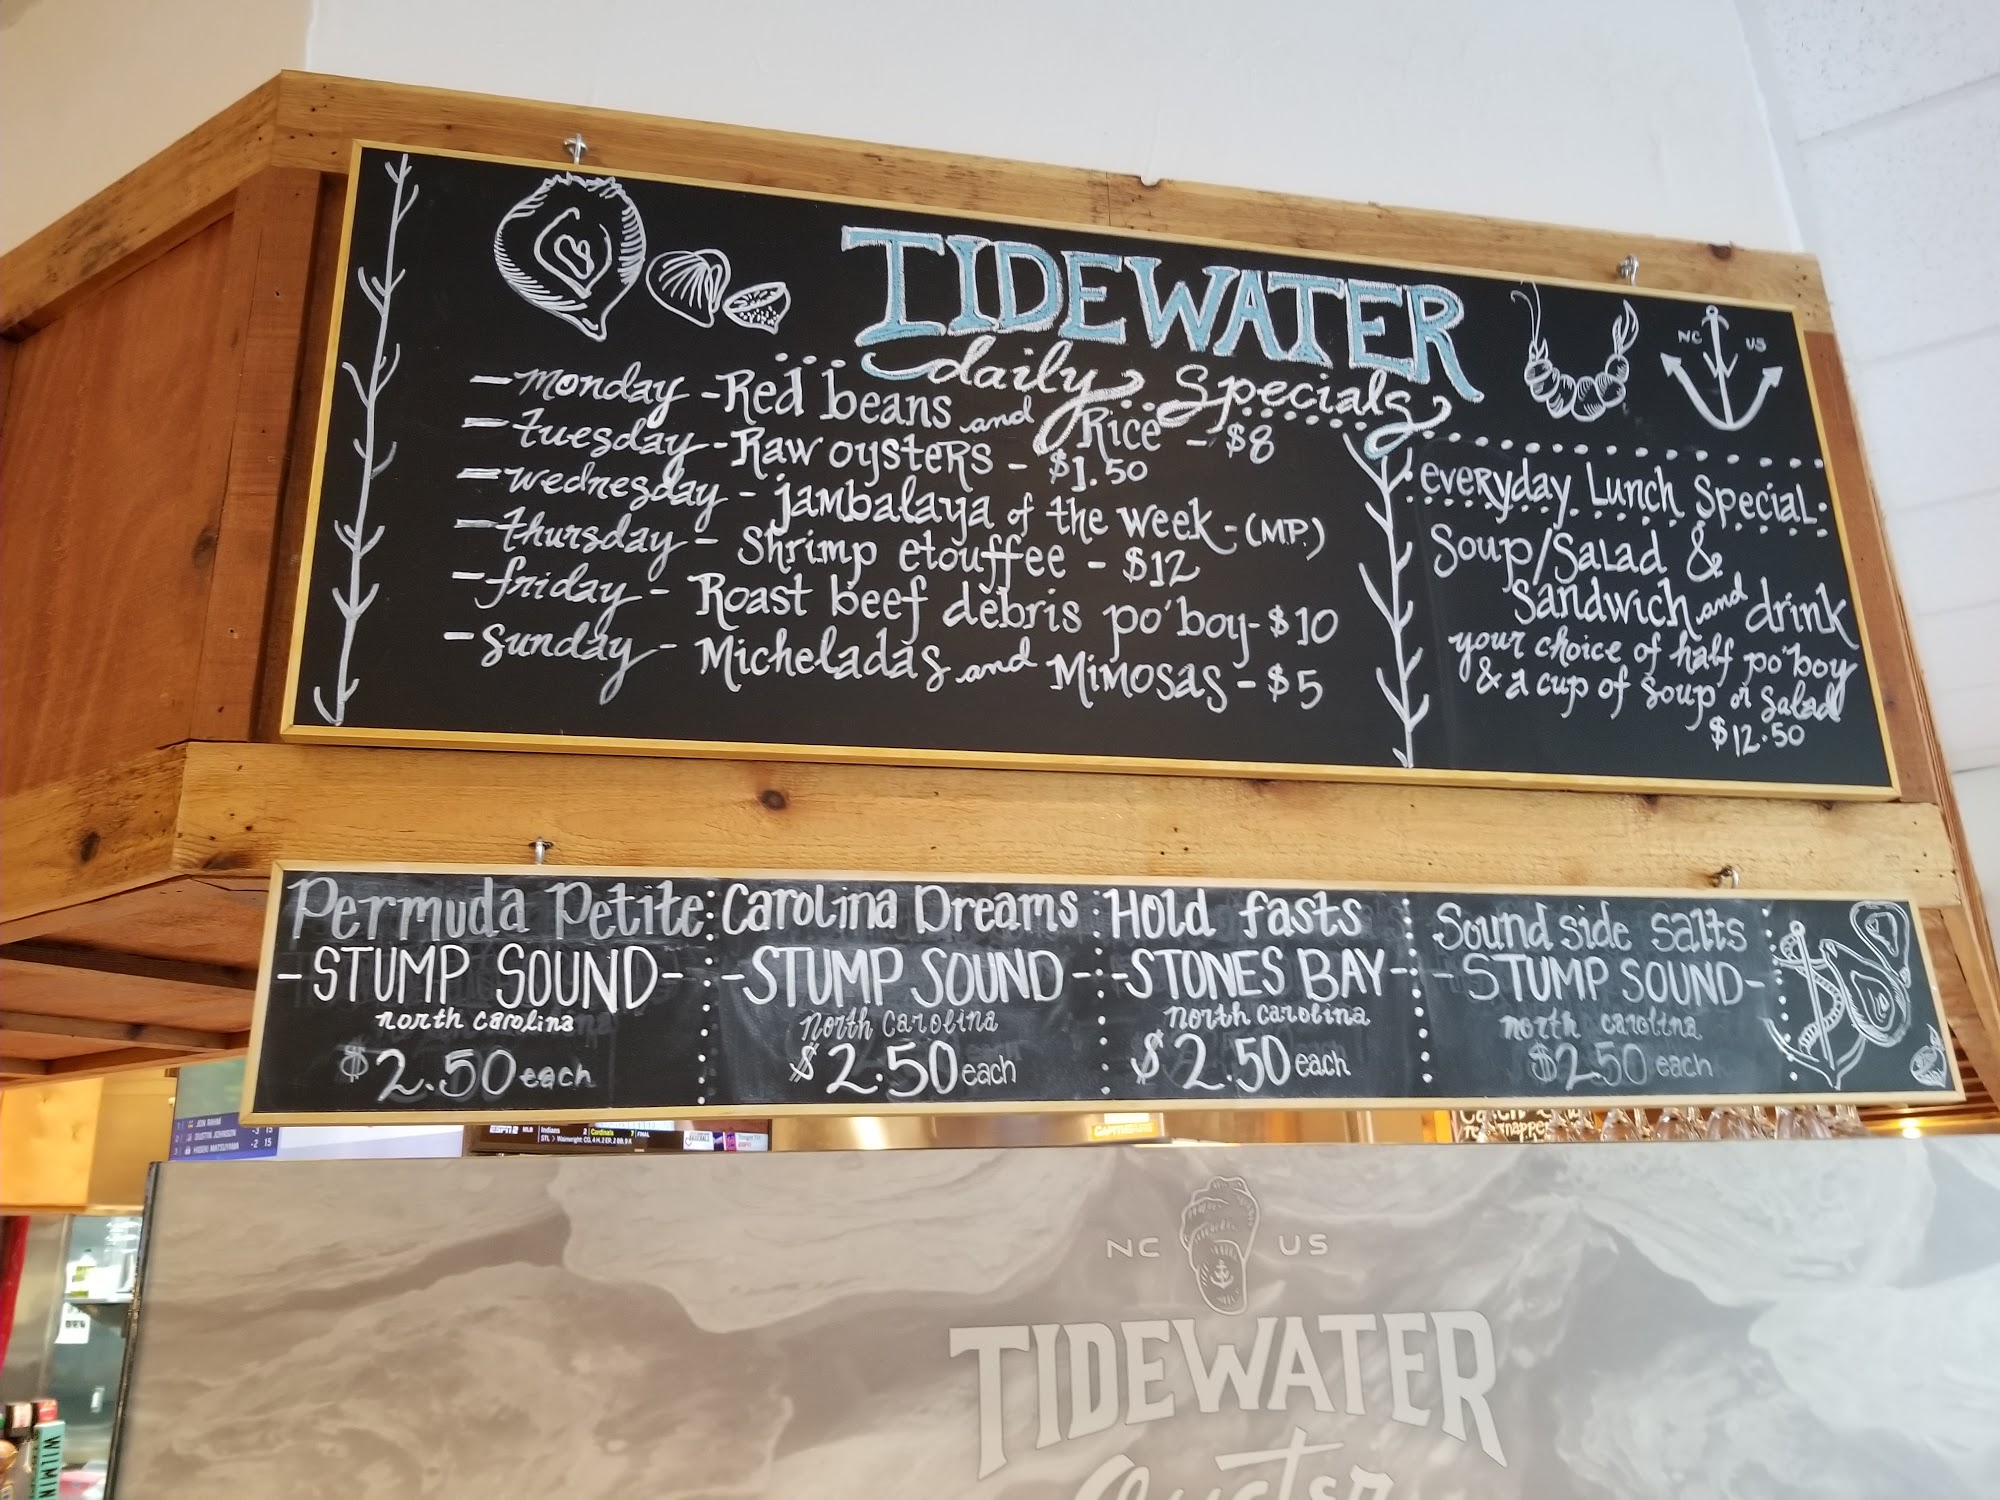 TIDEWATER
daily specials
NC US
- monday - Red beans and Rice - $8
- tuesday - Raw oysters - $1.50
- wednesday - jambalaya of the week - (M.P.)
- thursday - shrimp etouffee - $12
- friday - Roast beef debris po'boy - $10
- sunday - Micheladas and Mimosas - $5
everyday Lunch Special
Soup/Salad &
Sandwich and drink
your choice of half po'boy
& a cup of soup or salad
$12.50
Permuda Petite
-STUMP SOUND-
north carolina
$2.50 each
Carolina Dreams
-STUMP SOUND-
north carolina
$2.50 each
Hold fasts
-STONES BAY-
north carolina
$2.50 each
Sound side salts
-STUMP SOUND-
north carolina
$2.50 each
JON RAHM
DUSTIN JOHNSON -3 15
HIDEKI MATSUYAMA -2 15
ESPN2 MLB Indians 2 Cardinals 7 FINAL
NC US
TIDEWATER
Oyster
WILMIN